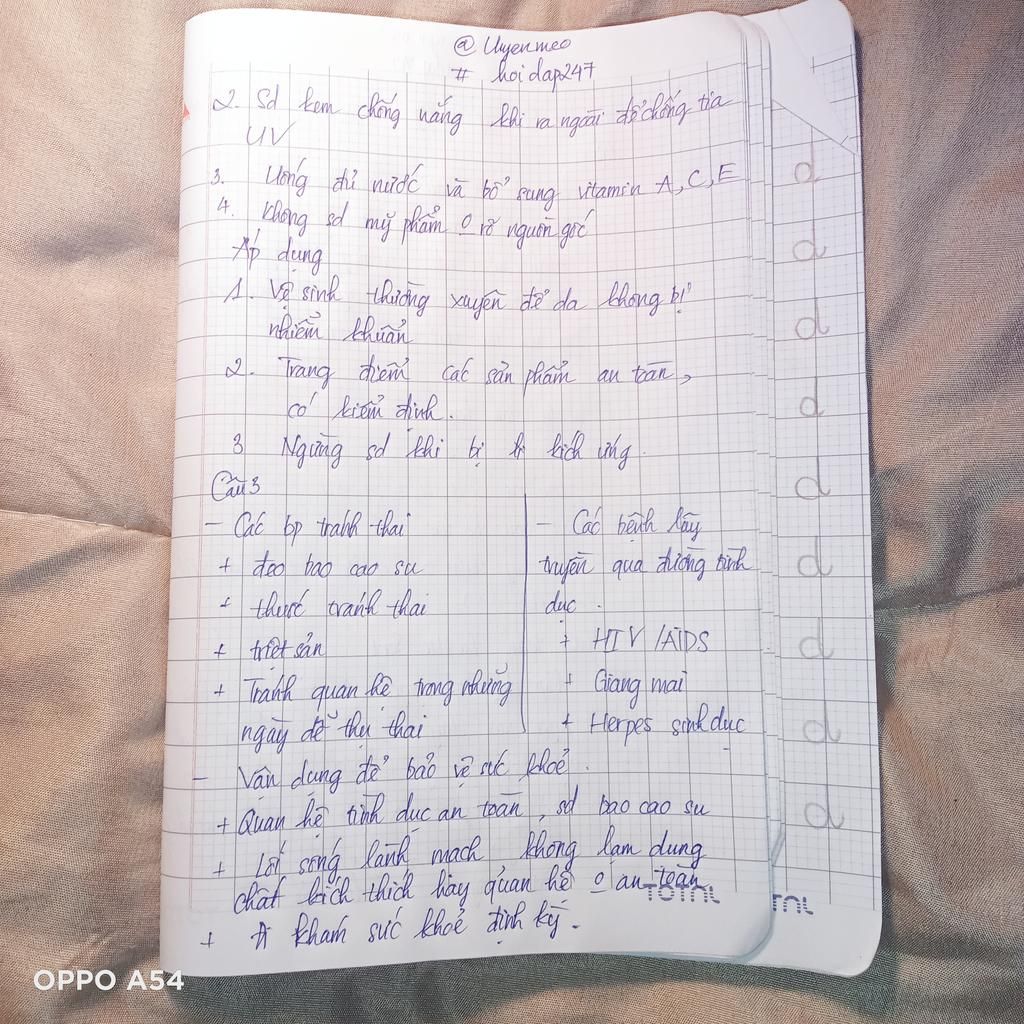 @ Uyenmeo
# hoidap247
2. Sd kem chống nắng khi ra ngoài để chống tia
UV
3. Uống đủ nước và bổ sung vitamin A, C, E
4. Không sd mỹ phẩm o rõ nguồn gốc
Áp dụng
1. Vệ sinh thường xuyên để da không bị
nhiễm khuẩn
2. Trang điểm các sản phẩm an toàn,
có kiểm định.
3 Ngừng sd khi bị kích ứng.
Câu 3
- Các bp tránh thai
+ đeo bao cao su
+ thuốc tránh thai
+ triệt sản
+ Tránh quan hệ trong những
ngày dễ thụ thai
- Các bệnh lây
truyền qua đường tình
dục.
+ HIV/AIDS
+ Giang mai
+ Herpes sinh dục
- Vận dụng để bảo vệ sức khoẻ.
+ Quan hệ tình dục an toàn, sd bao cao su
+ Lối sống lành mạch không lạm dụng
chất kích thích hay quan hệ o an toàn
+ khám sức khoẻ định kỳ.
d
d
d
d
d
d
d
d
d
TOTAL
TAL
OPPO A54